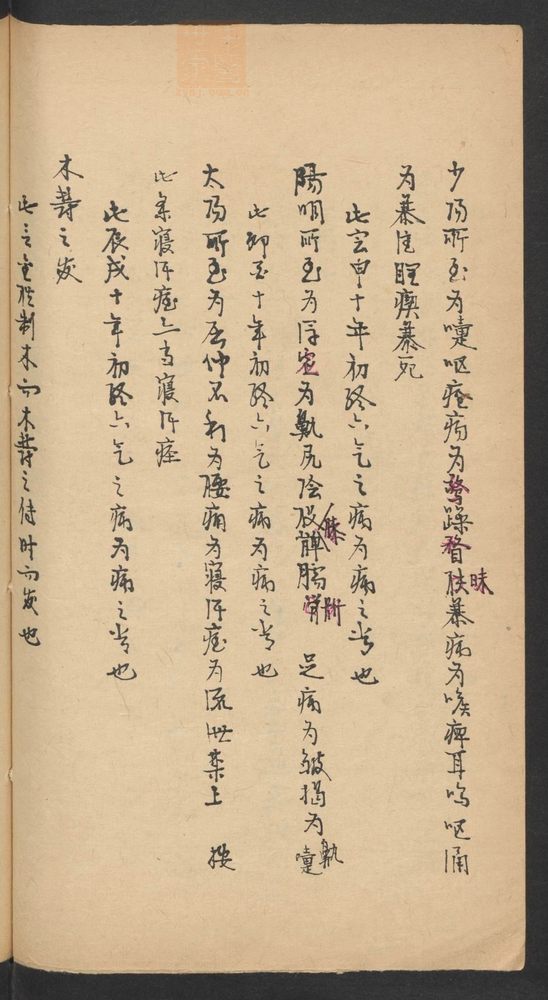 少陽所至為嚏嘔瘡瘍為驚躁瞀昧暴病為喉痺耳鳴嘔涌
為暴注瞤瘛暴死
此寅申十年初終六气之病為病之常也
陽明所至為浮虛為鼽尻陰股膝髀腨胻足病為皴揭為鼽嚏
此卯酉十年初終六气之病為病之常也
太陽所至為屈伸不利為腰痛為寢汗痙為流泄禁止 按
此条寢汗痙三字寢汗痙
此辰戌十年初終六气之病為病之常也
木鬱之发
此言金胜制木而木鬱之待时而发也